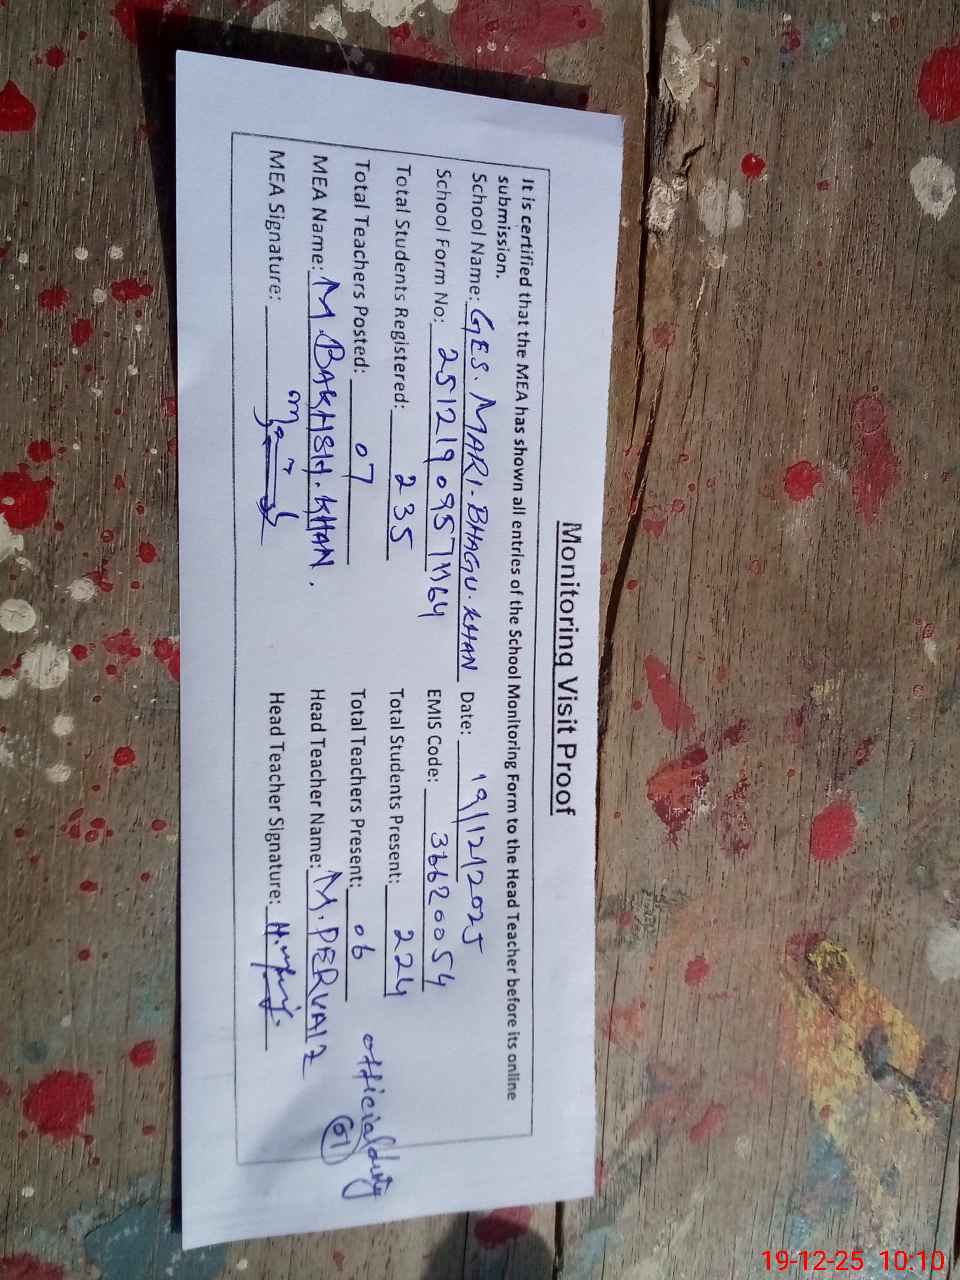 Monitoring Visit Proof
It is certified that the MEA has shown all entries of the School Monitoring Form to the Head Teacher before its online
submission.
School Name: GES. MARI. BHAGU. KHAN Date: 19/12/2025
School Form No: 251219095711164 EMIS Code: 36620054
Total Students Registered: 235 Total Students Present: 224
Total Teachers Posted: 07 Total Teachers Present: 06 official duty
MEA Name: M. BAKHSH. KHAN. Head Teacher Name: M. PERVAIZ 01
MEA Signature: Head Teacher Signature:
19-12-25 10:10